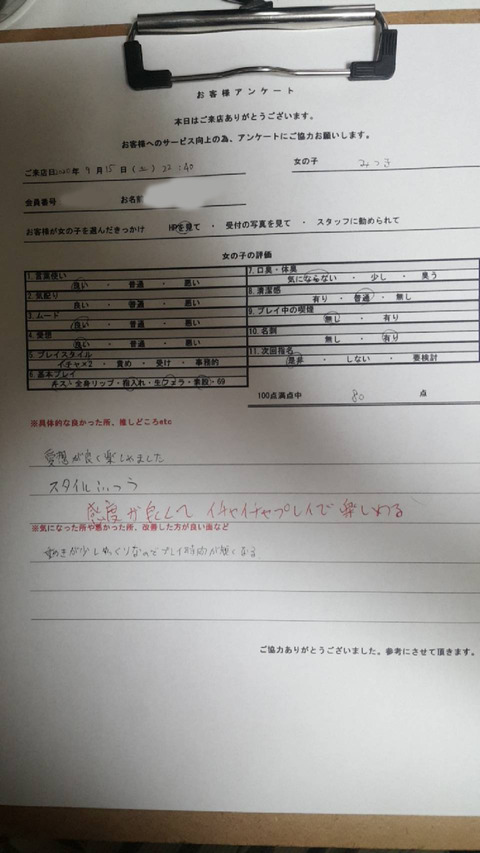 お客様アンケート
本日はご来店ありがとうございます。
お客様へのサービス向上の為、アンケートにご協力お願いします。
ご来店日 年 9月 15日 ( ) 22:40 女の子 みつき
会員番号 お名前
お客様が女の子を選んだきっかけ HPを見て ・ 受付の写真を見て ・ スタッフに勧められて
女の子の評価
1. 言葉使い
良い ・ 普通 ・ 悪い
2. 気配り
良い ・ 普通 ・ 悪い
3. ムード
良い ・ 普通 ・ 悪い
4. 愛想
良い ・ 普通 ・ 悪い
5. プレイスタイル
イチャ×2 ・ 責め ・ 受け ・ 事務的
6. 基本プレイ
キス・全身リップ・指入れ・生フェラ・素股・69
7. 口臭・体臭
気にならない ・ 少し ・ 臭う
8. 清潔感
有り ・ 普通 ・ 無し
9. プレイ中の喫煙
無し ・ 有り
10. 名刺
無し ・ 有り
11. 次回指名
是非 ・ しない ・ 要検討
100点満点中 80 点
※具体的な良かった所、推しどころetc
愛想が良く楽しめました
スタイルふつう
感度が良くて イチャイチャプレイで楽しめる
※気になった所や悪かった所、改善した方が良い面など
動きが少しゆっくりなのでプレイ時間が短くなる
ご協力ありがとうございました。参考にさせて頂きます。